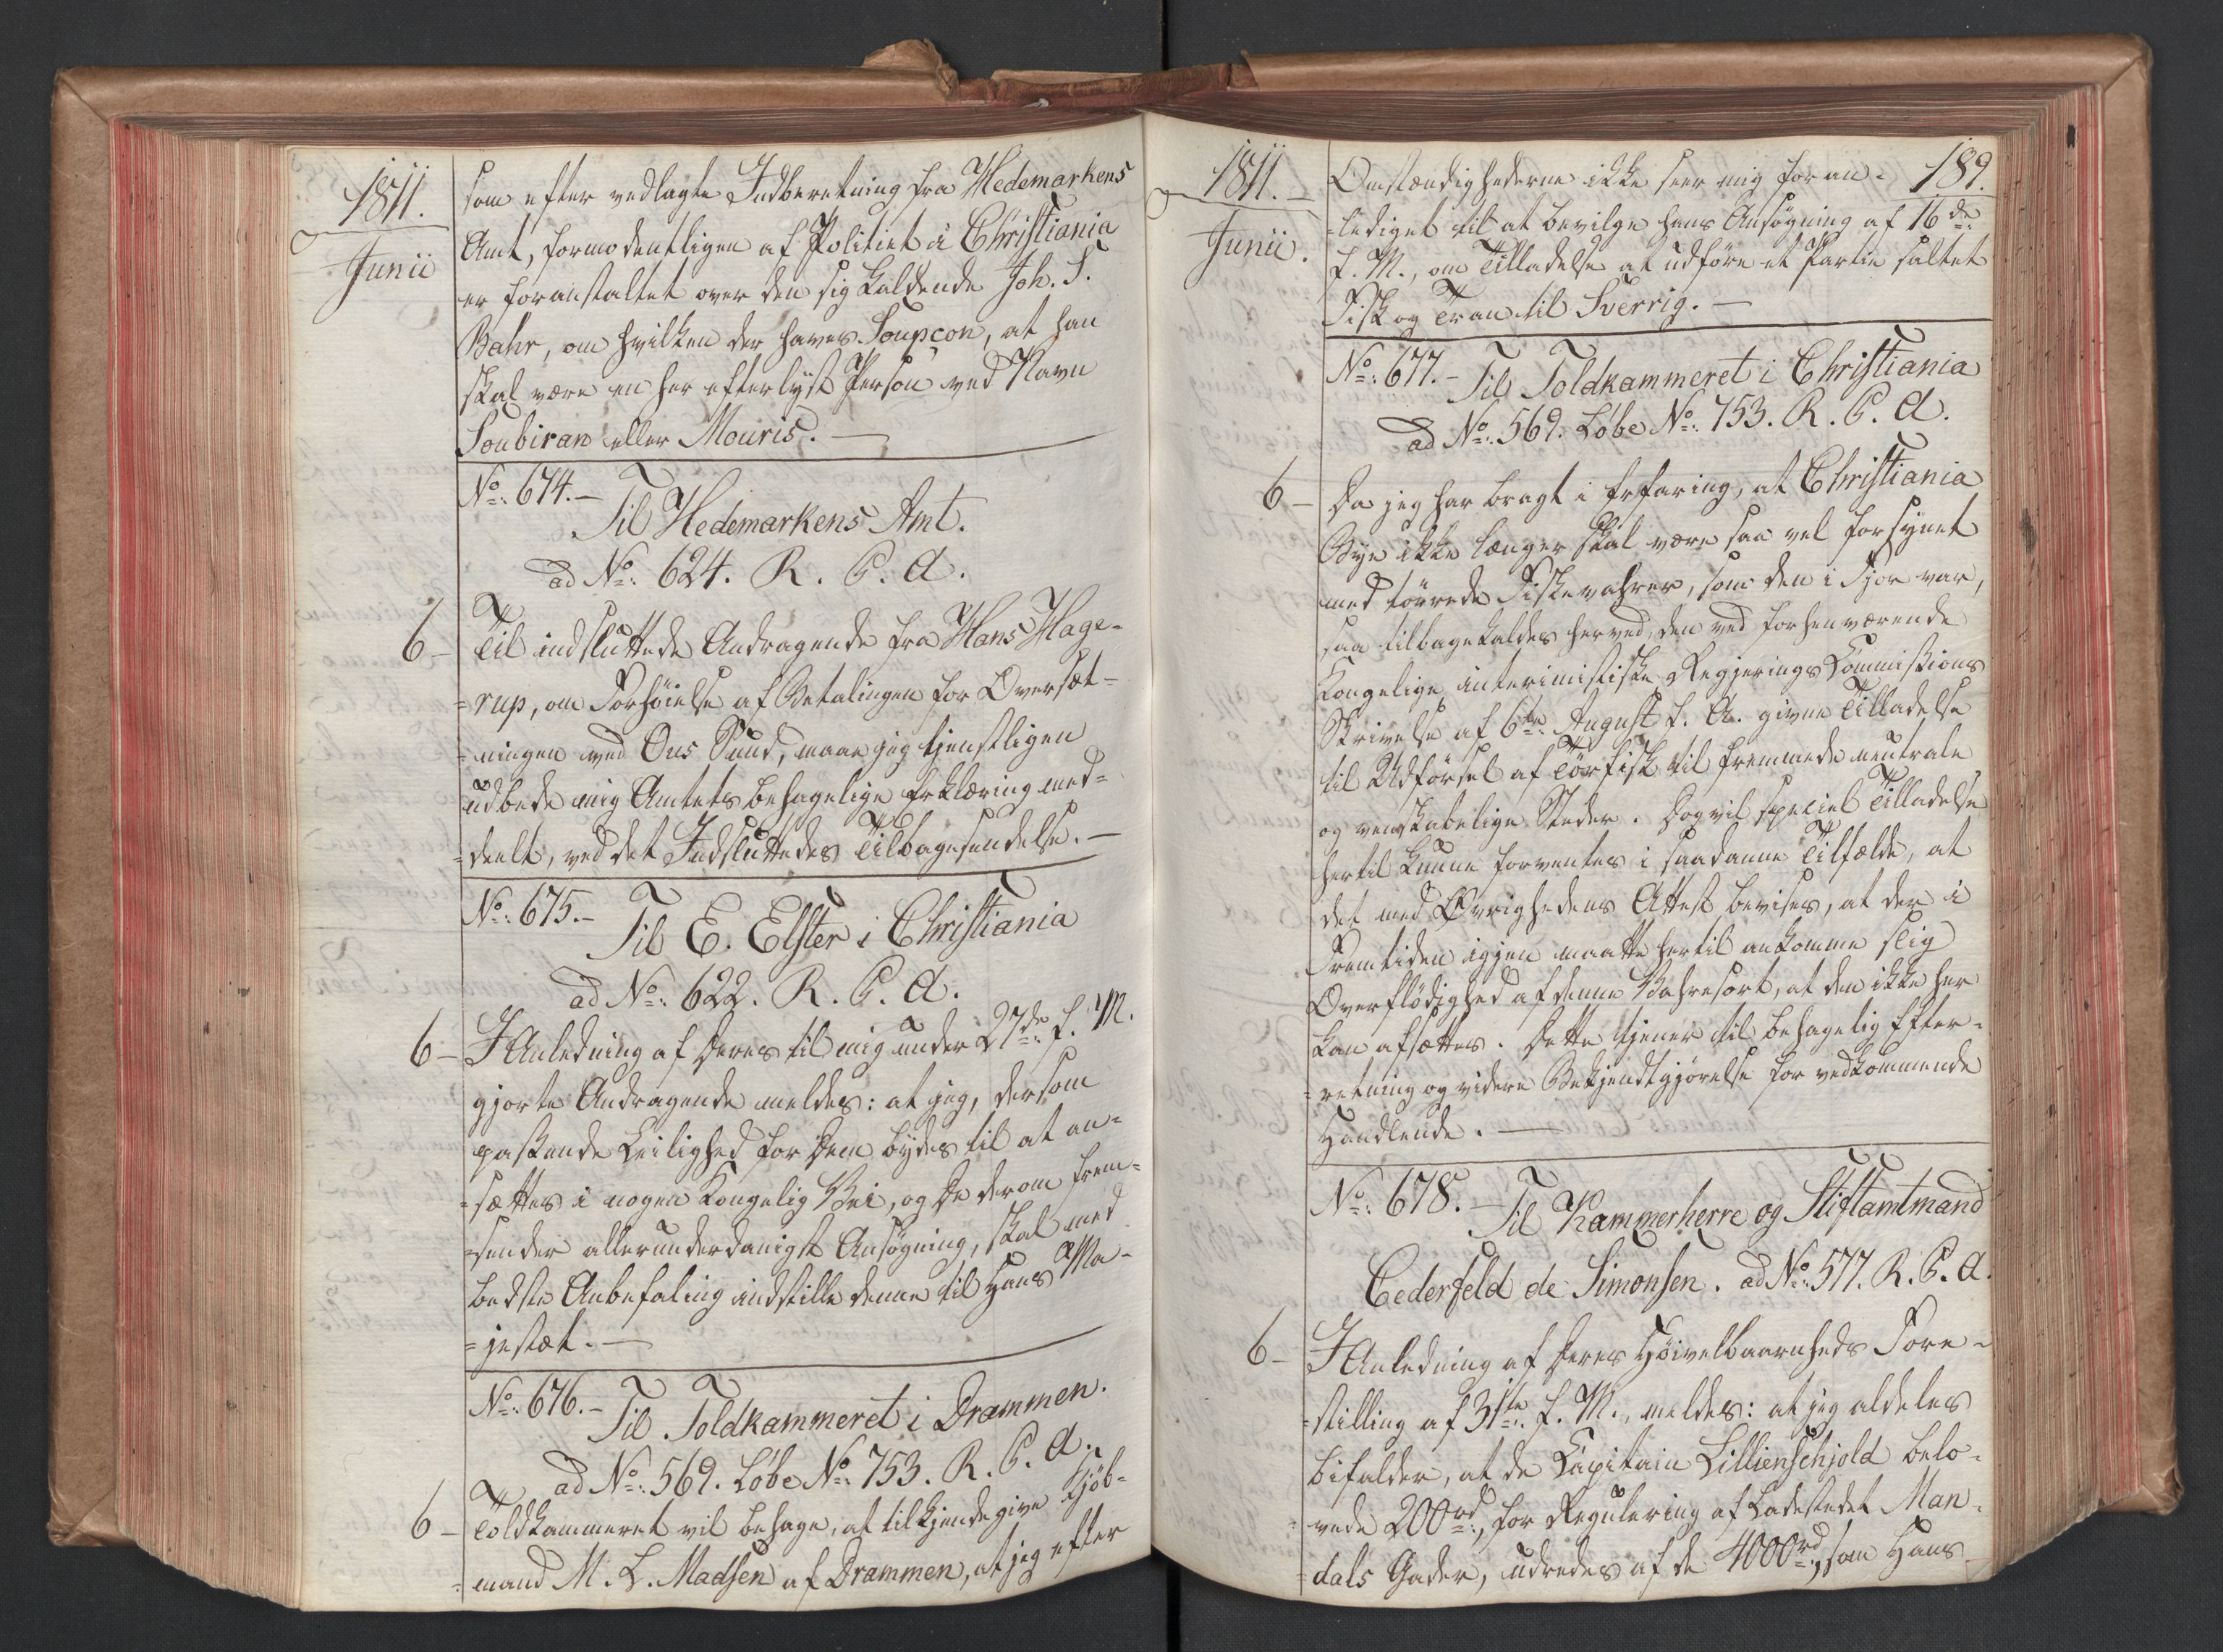 1811.
Junii
som efter vedlagte Indberetning fra Hedemarkens
Amt, formodentligen af Politiet i Christiania
er foranstaltet over den sig kaldende Joh. S.
Bahr, om hvilken der haves Soupcon, at han
skal være en her efterlyst Person ved Navn
Soubiran eller Mouris. —
No: 674. – Til Hedemarkens Amt.
ad No: 624. R. P. A.
6 – Til indsluttede Andragende fra Hans Hage-
=rup, om Forhøielse af Betalingen for Oversæt-
=ningen ved Ous Sund, maae jeg tjenstligen
udbede mig Amtets behagelige Erklæring med=
=deelt, ved det Indsluttedes Tilbagesendelse. —
No: 675. – Til E. Elster i Christiania
ad No: 622. R. P. A.
6 – I Anledning af Deres til mig under 27de f. M.
gjorte Andragende meldes: at jeg, dersom
passende Leilighed for Dem bydes til at an-
=sættes i nogen Kongelig Vei, og De derom frem=
=sender allerunderdanigst Ansøgning, skal med
bedste Anbefaling indstille denne til Hans Ma-
=jestæt. —
No: 676. – Til Toldkammeret i Drammen.
ad No: 569. Løbe No: 753. R. P. A.
6 – Toldkammeret vil behage, at tilkjendegive Kjøb-
=mand M. L. Madsen af Drammen, at jeg efter
1811. –
Junii.
189.
Omstændighederne ikke seer mig foran-
=lediget til at bevilge hans Ansøgning af 16de
f. M., om Tilladelse at udføre et Partie saltet
Fisk og Tran til Sverrig. —
No: 677. – Til Toldkammeret i Christiania
ad No: 569. Løbe No: 753. R. P. A.
6 – Da jeg har bragt i Erfaring, at Christiania
Bye ikke længer skal være saa vel forsynet
med tørrede Fiskevahrer, som den i Fjor var,
saa tilbagekaldes herved, den ved forhenværende
Kongelige interimistiske Regjerings Commissions
Skrivelse af 6te August f. A. givne Tilladelse
til Udførsel af Tørfisk til fremmede neutrale
og venskabelige Steder. Dog vil speciel Tilladelse
hertil kunne forventes i saadanne Tilfælde, at
det med Øvrighedens Attest bevises, at der i
Fremtiden igjen maatte hertil ankomme slig
Overflødighed af denne Vahresort, at den ikke her
kan afsættes. Dette tjener til behagelig Efter-
=retning og videre Bekjendtgjørelse for vedkommende
Handlende. —
No: 678. – Til Kammerherre og Stiftamtmand
Cederfeld de Simonsen. ad No: 577. R. P. A.
6 – I Anledning af Deres Høivelbaarnheds Fore-
=stilling af 31te f. M., meldes: at jeg aldeles
bifalder, at de Capitain Lillienschjold belo-
=vede 200rd, for Regulering af Ladestedet Man-
=dals Gader, udredes af de 4000rd, som Hans